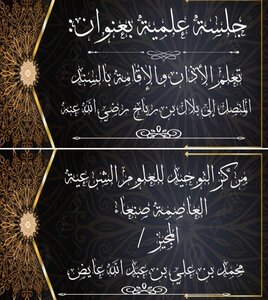 جلسة علمية بعنوان:
تعلم الأذان والإقامة بالسند
المتصل إلى بلال بن رباح رضي الله عنه
مركز التوحيد للعلوم الشرعية
العاصمة صنعاء
المجيز /
محمد بن علي بن عبد الله عايض